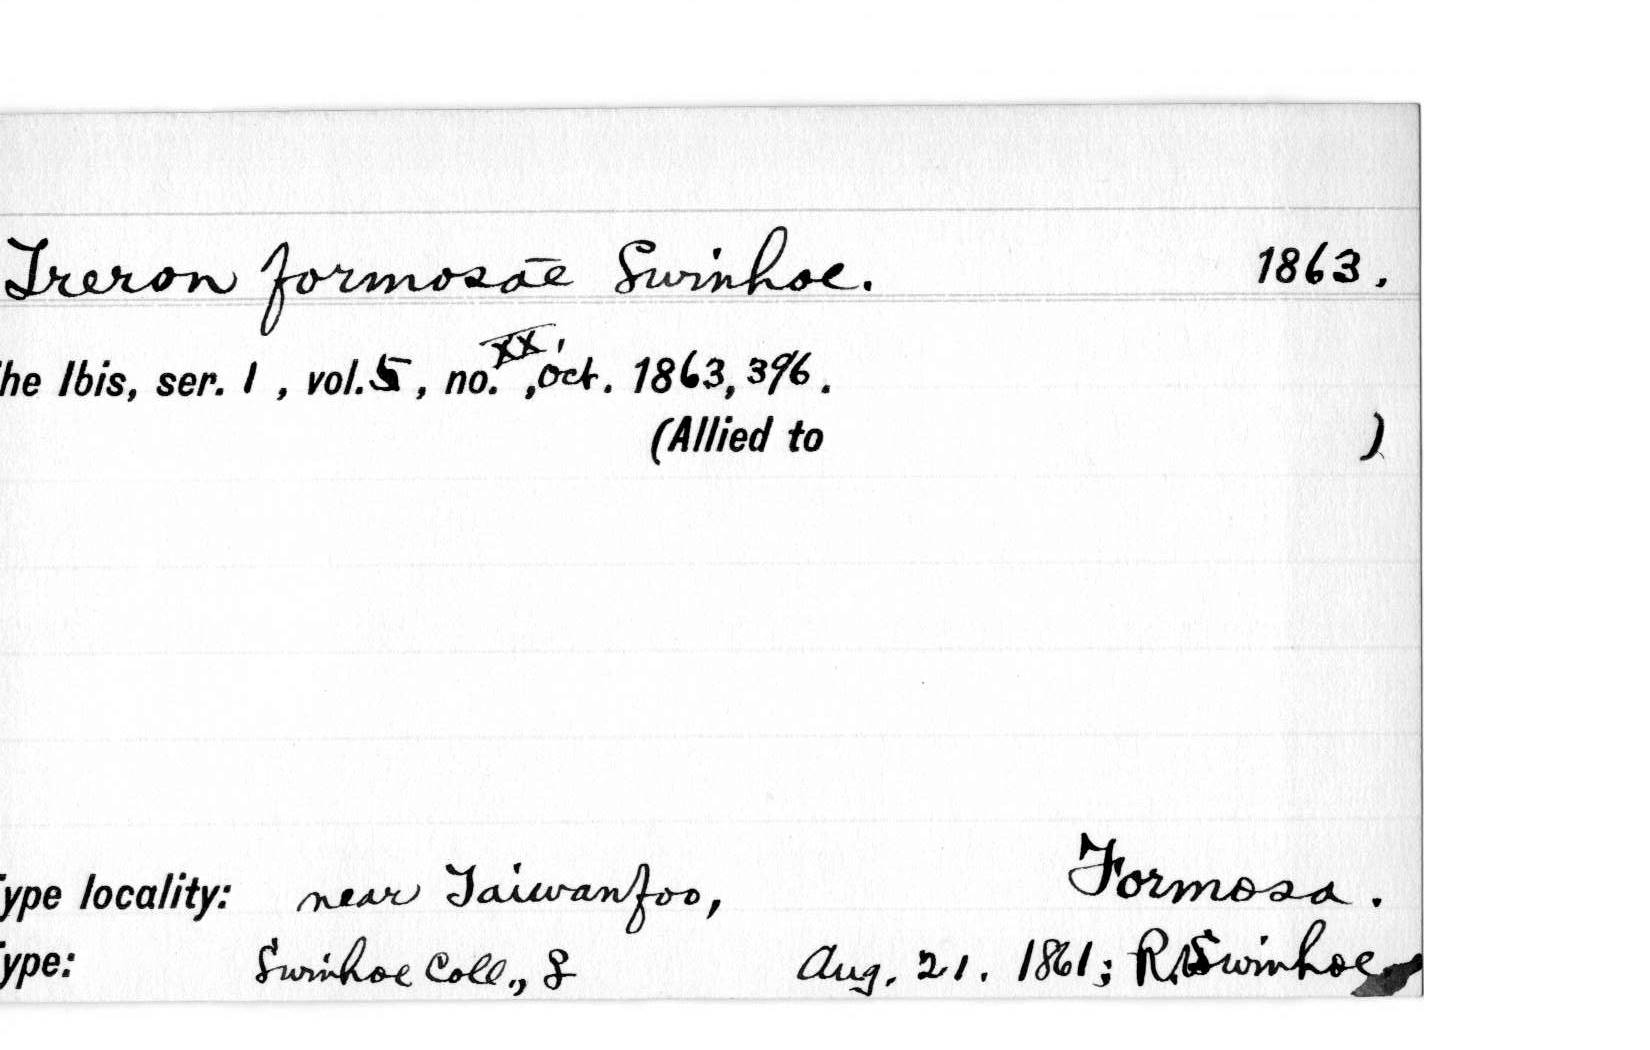 Treron formosae Swinhoe. 1863.
he Ibis, ser. 1, vol. 5, no. XX, Oct. 1863, 396.
(Allied to )
ype locality: near Taiwanfoo, Formosa.
ype: Swinhoe Coll., Aug. 21. 1861; R. Swinhoe.